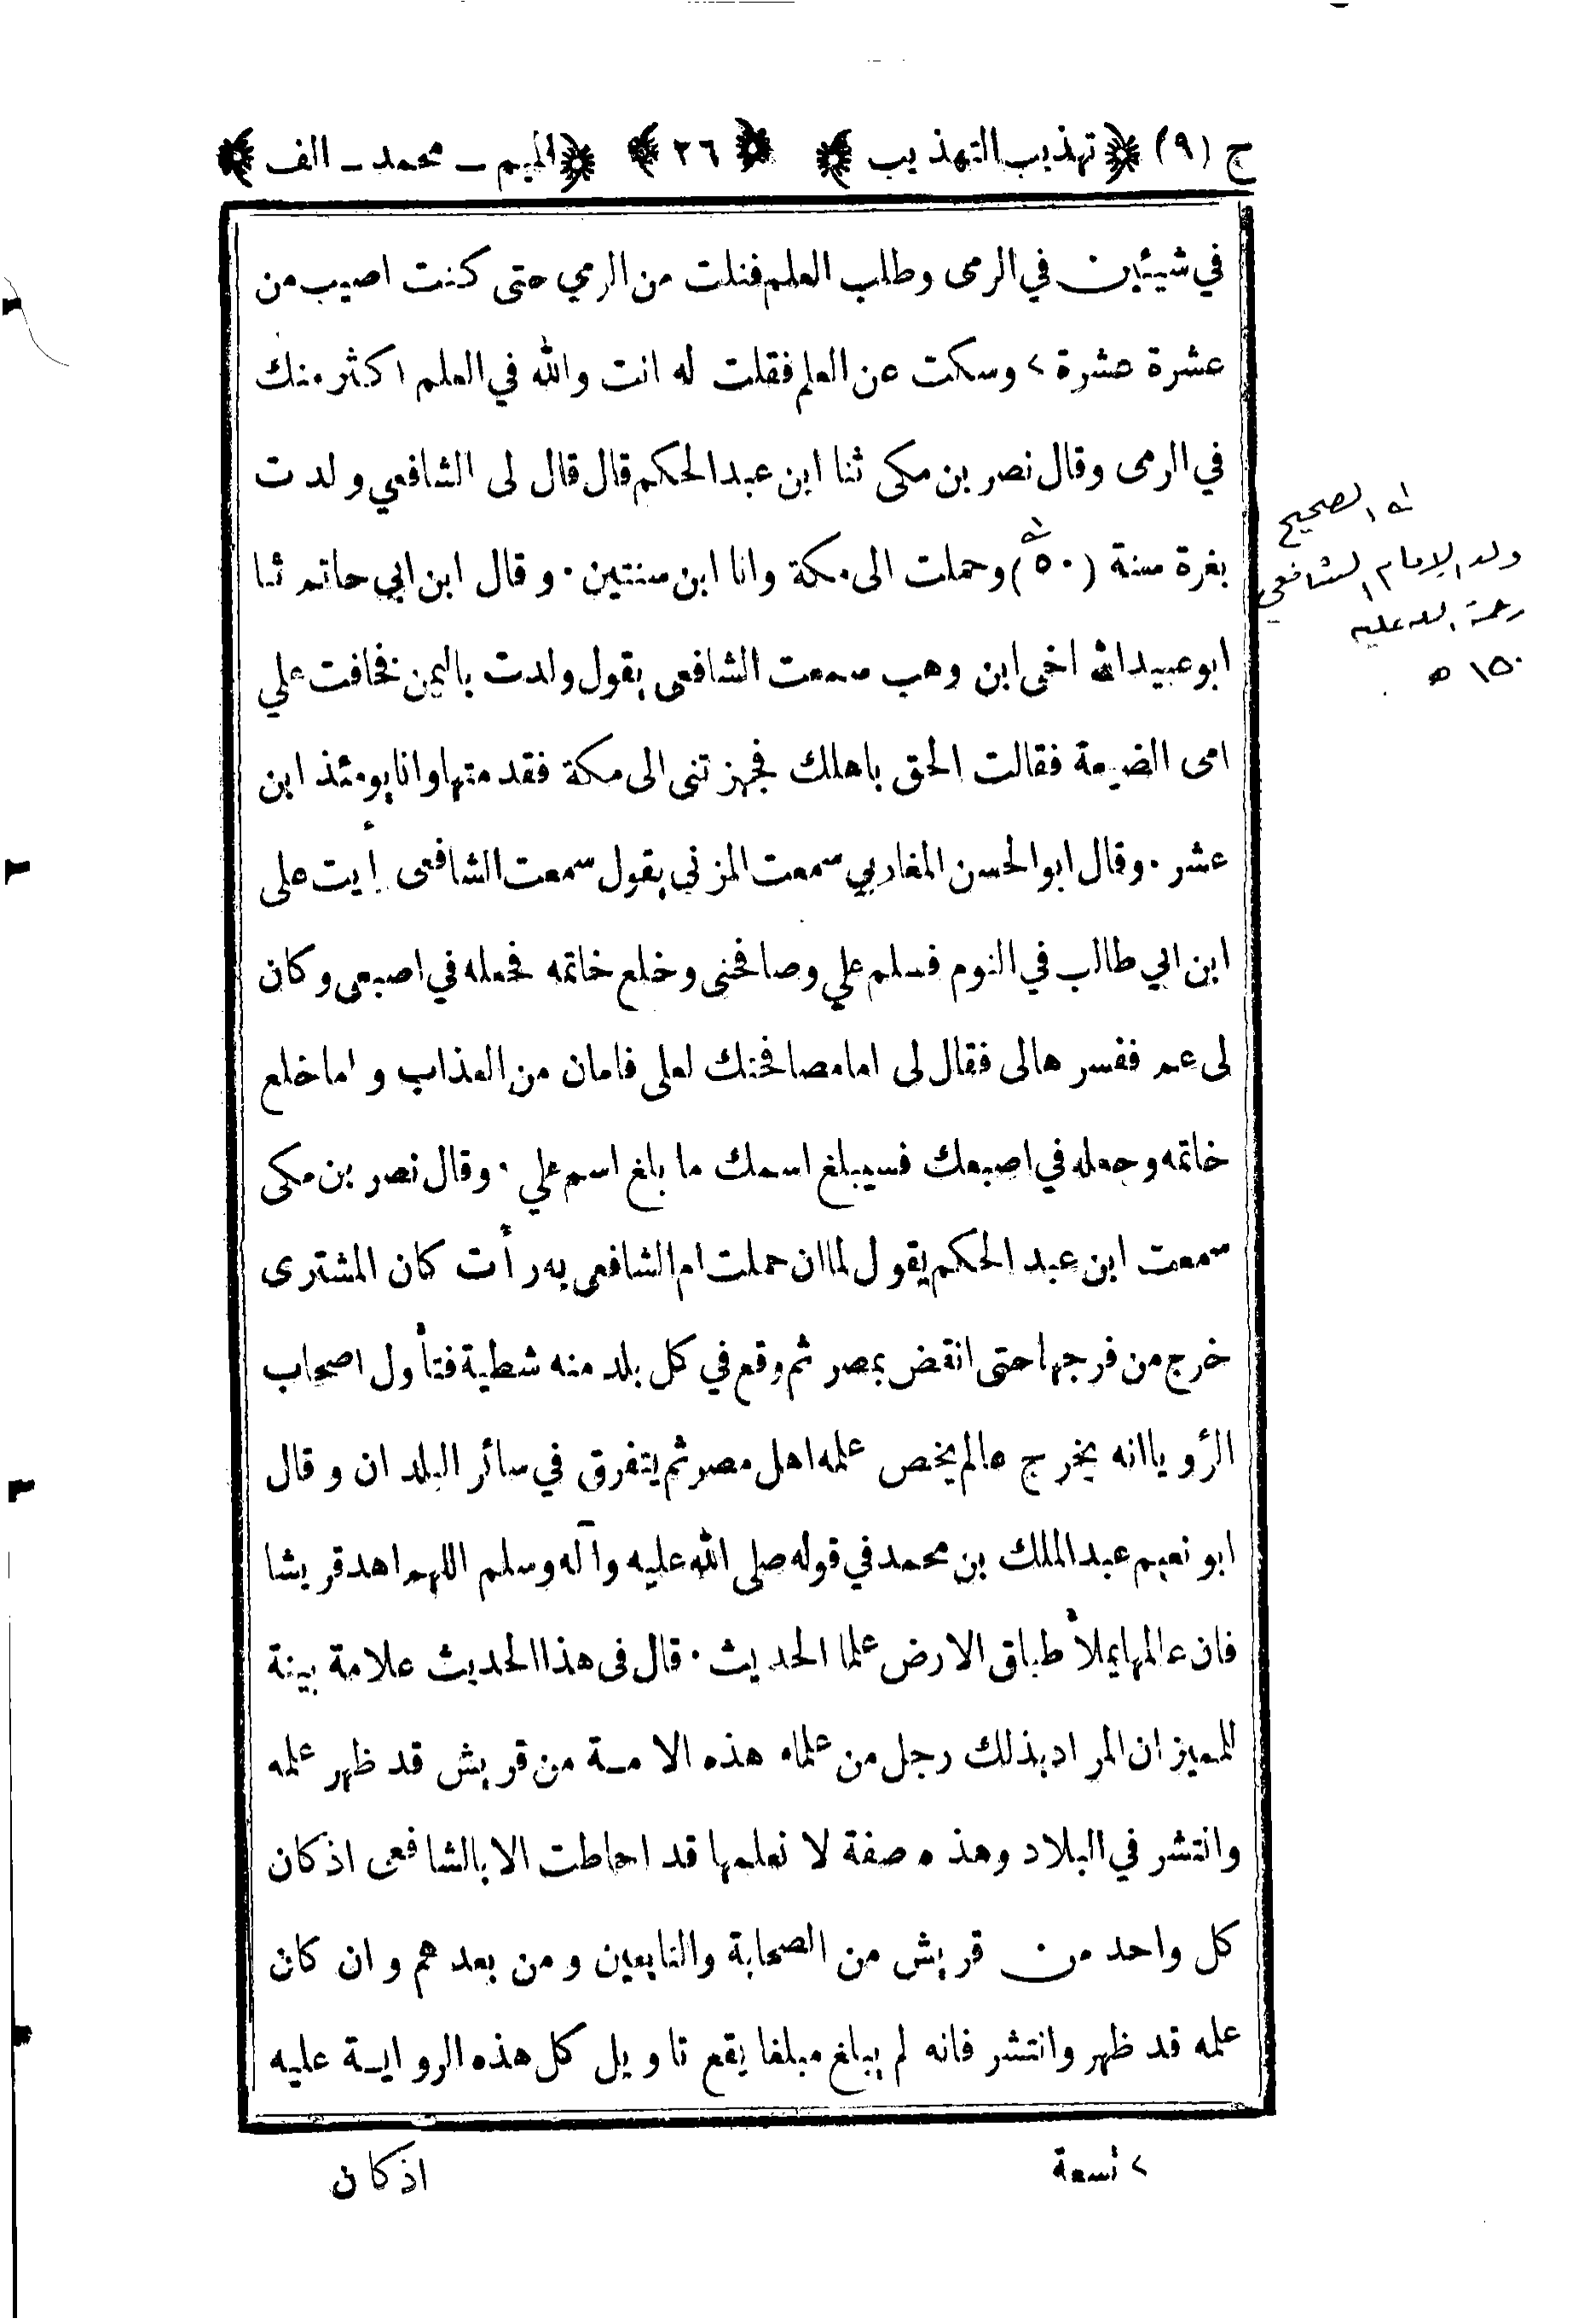 ج (٩) ﴿تهذيب التهذيب﴾ ﴿٢٦﴾ ﴿الميم – محمد – الف﴾
في شيئين في الرمى وطلب العلم فنلت من الرمي حتى كنت اصيب من
عشرة عشرة > وسكت عن العلم فقلت له انت والله في العلم اكثر منك
في الرمى وقال نصر بن مكى ثنا ابن عبد الحكم قال قال لى الشافعي ولدت
بغرة سنة (٥٠) وحملت الى مكة وانا ابن سنتين . وقال ابن ابي حاتم ثنا
ابو عبيد الله اخى ابن وهب سمعت الشافعى يقول ولدت باليمن فخافت علي
امى الضيعة فقالت الحق باهلك فجهزتنى الى مكة فقدمتها وانا يومئذ ابن
عشر . وقال ابو الحسن المغاربي سمعت المزني يقول سمعت الشافعى أيت على
ابن ابي طالب في النوم فسلم علي وصافحنى وخلع خاتمه فجعله في اصبعى وكان
لى عم ففسرها لى فقال لى اما مصافحتك لعلى فامان من العذاب واما خلع
خاتمه وجعله في اصبعك فسيبلغ اسمك ما بلغ اسم علي . وقال نصر بن مكى
سمعت ابن عبد الحكم يقول لما ان حملت ام الشافعى به رأت كان المشترى
خرج من فرجها حتى انقض بمصر ثم وقع في كل بلد منه شطية فتأول اصحاب
الرؤيا انه يخرج عالم يخص علمه اهل مصر ثم يتفرق في سائر البلدان وقال
ابو نعيم عبد الملك بن محمد في قوله صلى الله عليه وآله وسلم اللهم اهد قريشا
فان عالمها يملأ طباق الارض علما الحديث . قال فى هذا الحديث علامة بينة
للمميز ان المراد بذلك رجل من علماء هذه الامة من قريش قد ظهر علمه
وانتشر في البلاد وهذه صفة لا نعلمها قد احاطت الا بالشافعى اذ كان
كل واحد من قريش من الصحابة والتابعين ومن بعدهم وان كان
علمه قد ظهر وانتشر فانه لم يبلغ مبلغا يقع تاويل كل هذه الرواية عليه
> تسعة
اذ كان
الصحيح
ولد الإمام الشافعي
رحمة الله عليه
١٥٠ ه